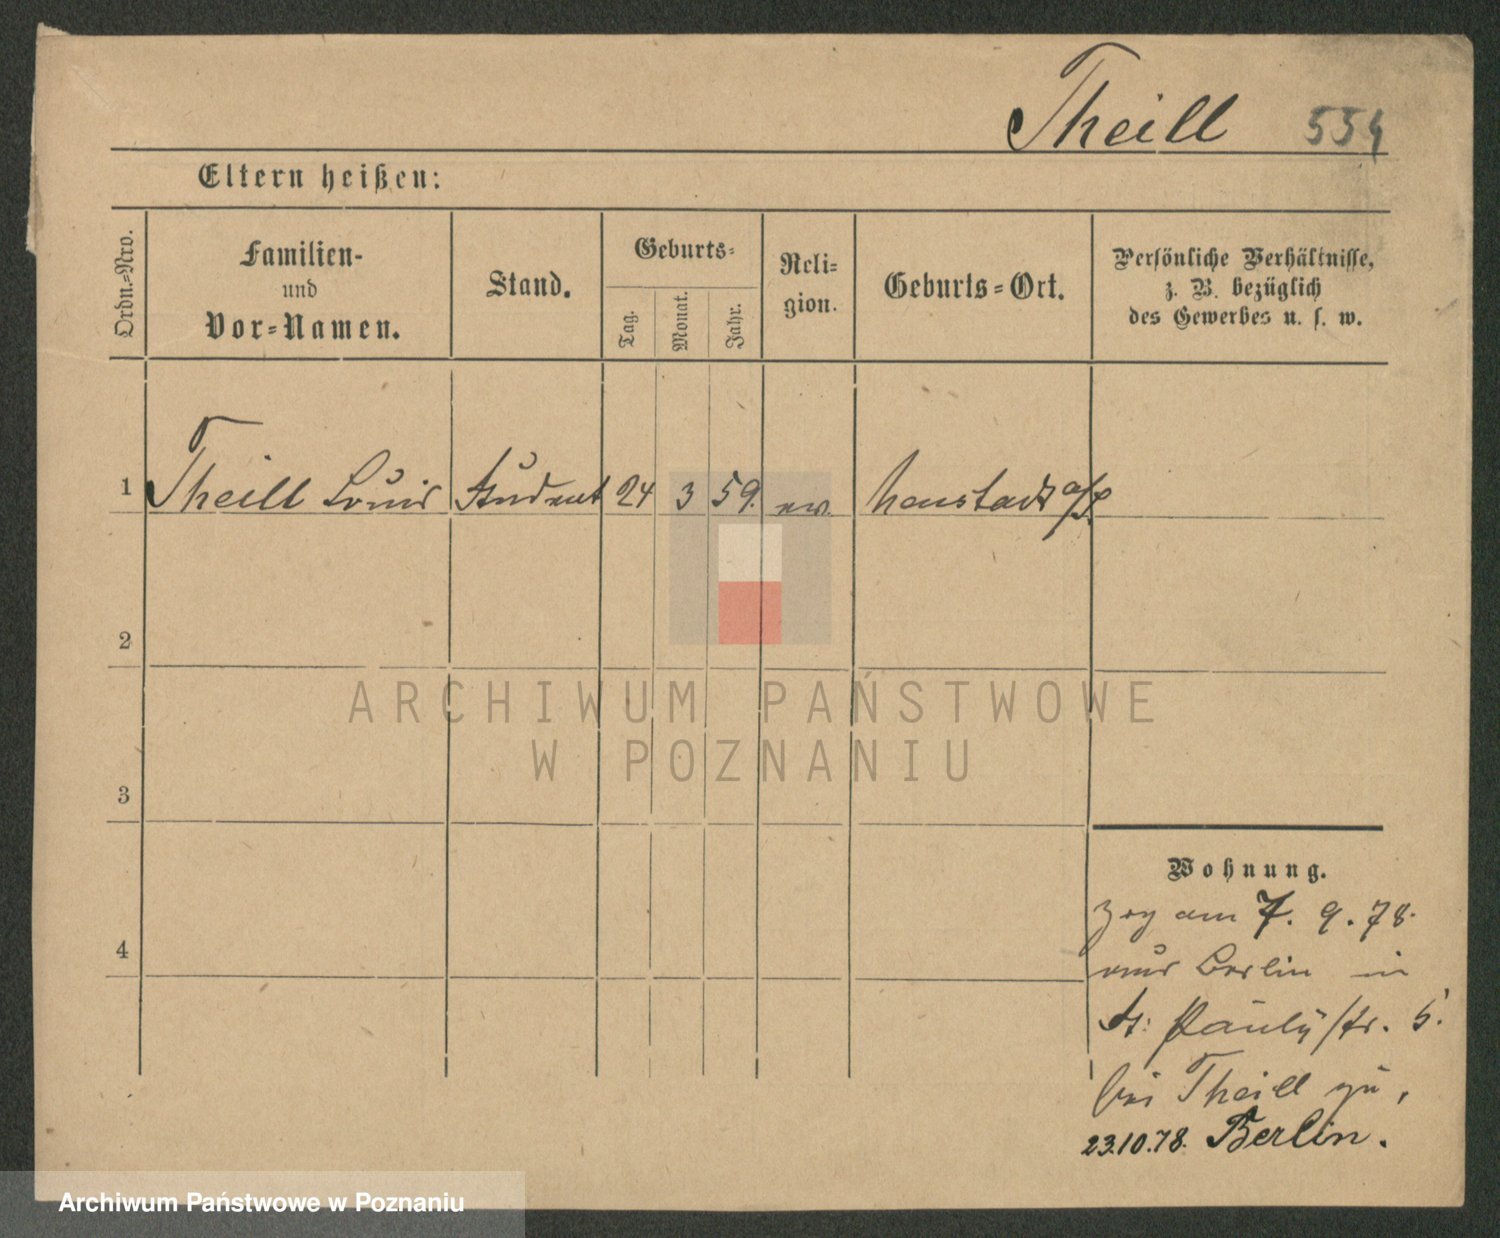 Theill 554
Eltern heißen:
Ordn.=Nro.
Familien-
und
Vor=Namen.
Stand.
Geburts=
Tag.
Monat.
Jahr.
Reli=
gion.
Geburts=Ort.
Persönliche Verhältnisse,
z. B. bezüglich
des Gewerbes u. s. w.
1 Theill Louis Student 24 3 59. ev. Neustadt a/
2
3
4
Wohnung.
zog am 7. 9. 78.
aus Berlin in
St. Paulystr. 5.
bei Theill zu,
23.10.78. Berlin.
ARCHIWUM PAŃSTWOWE
W POZNANIU
Archiwum Państwowe w Poznaniu